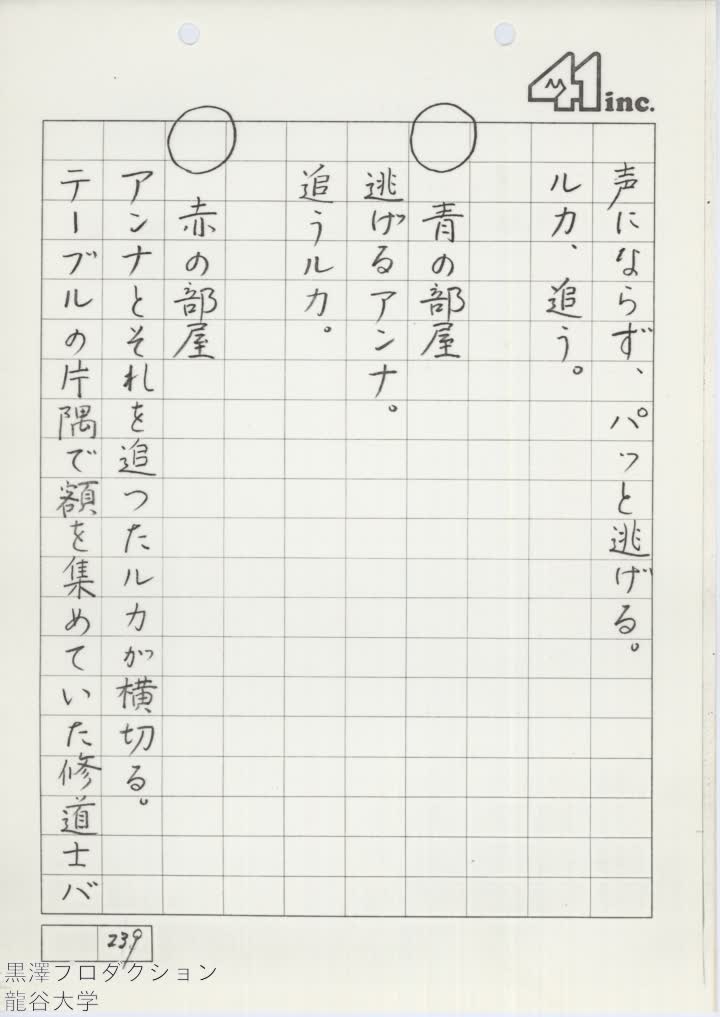 41 inc.
声にならず、パッと逃げる。
ルカ、追う。
○青の部屋
逃げるアンナ。
追うルカ。
○赤の部屋
アンナとそれを追つたルカが横切る。
テーブルの片隅で額を集めていた修道士バ
239
黒澤プロダクション
龍谷大学